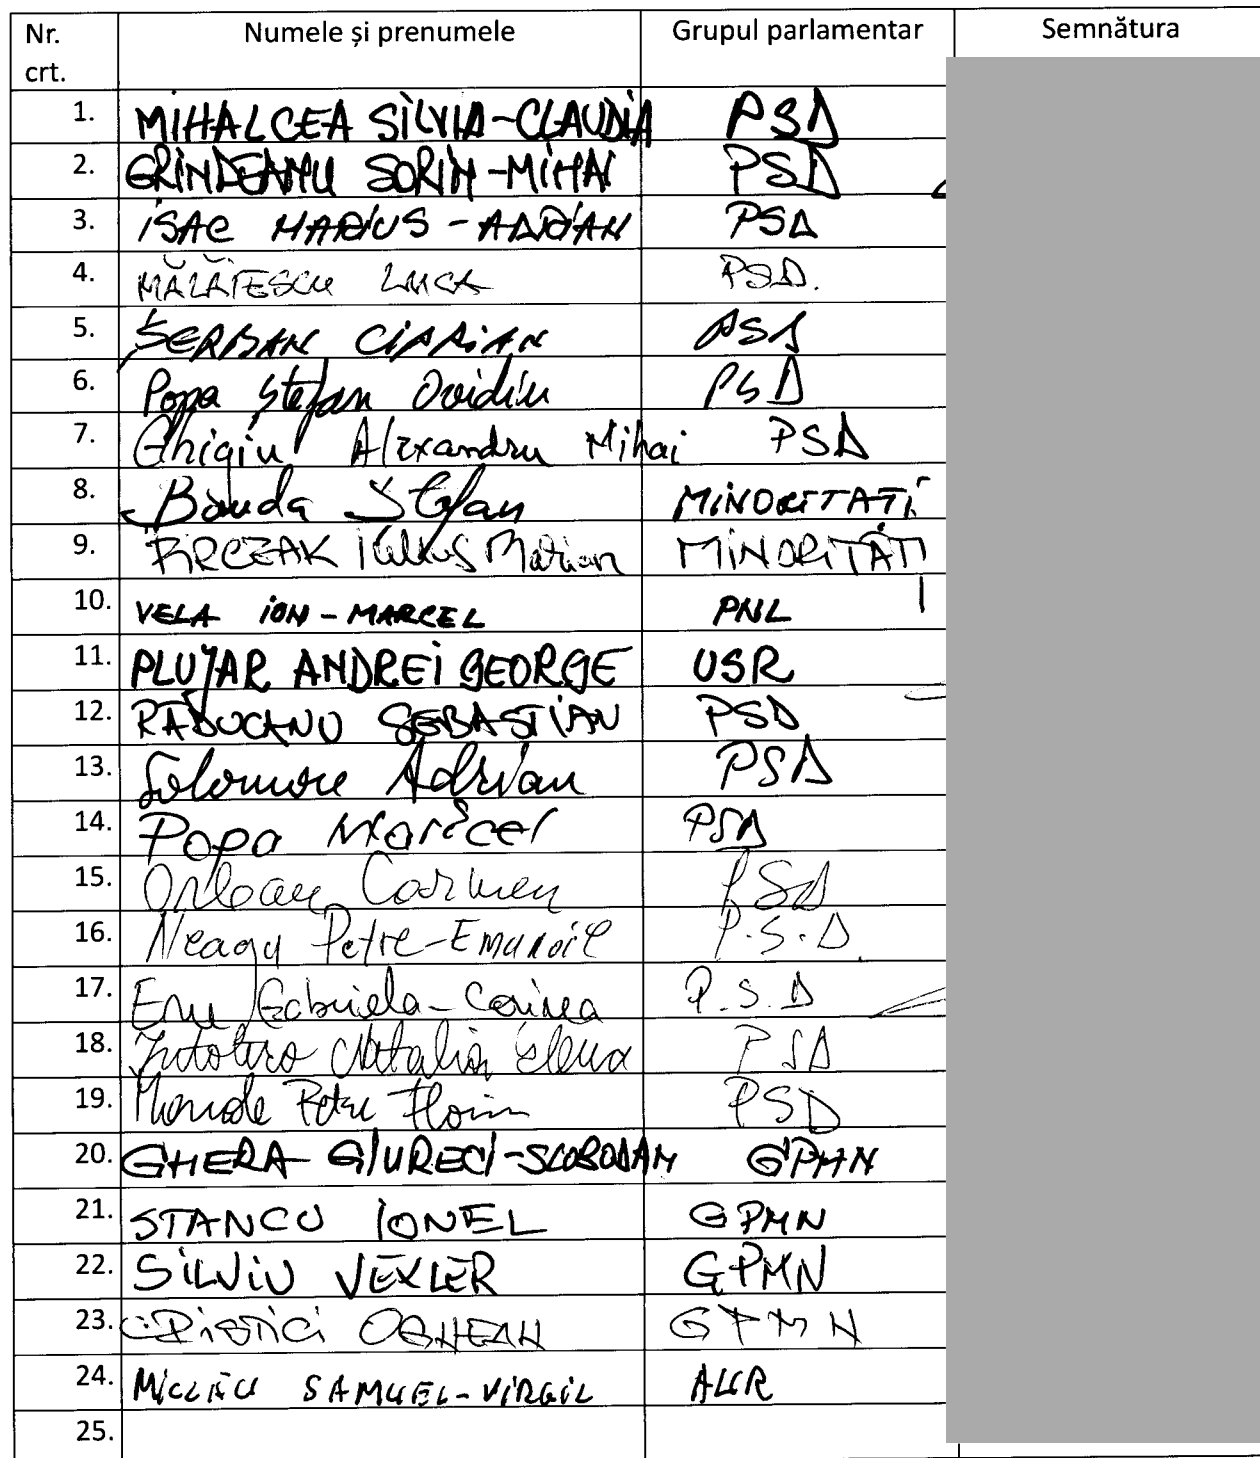 Nr. crt. Numele și prenumele Grupul parlamentar Semnătura
1. MIHALCEA SILVIA-CLAUDIA PSD
2. GRINDEANU SORIN-MIHAI PSD
3. ISAC MARIUS-ADRIAN PSD
4. MĂLĂIESCU LUCA PSD.
5. ȘERBAN CIPRIAN PSD
6. Popa Ștefan Ovidiu PSD
7. Ghigiu Alexandru Mihai PSD
8. Bouda Ștefan MINORITATI
9. FIRCZAK IULIUS Marian MINORITĂȚI
10. VELA ION-MARCEL PNL
11. PLUJAR ANDREI GEORGE USR
12. RĂDUCANU SEBASTIAN PSD
13. Solomon Adrian PSD
14. Popa Maricel PSD
15. Orban Carmen PSD
16. Neagu Petre-Emanoil P.S.D.
17. Enu Gabriela-Corina P.S.D
18. Intotero Natalia Elena PSD
19. Manole Petru Florin PSD
20. GHERA GIURECI-SLOBODAN GPMN
21. STANCU IONEL GPMN
22. SILVIU VEXLER GPMN
23. OGNEAN GPMN
24. MICLĂU SAMUEL-VIRGIL AUR
25.